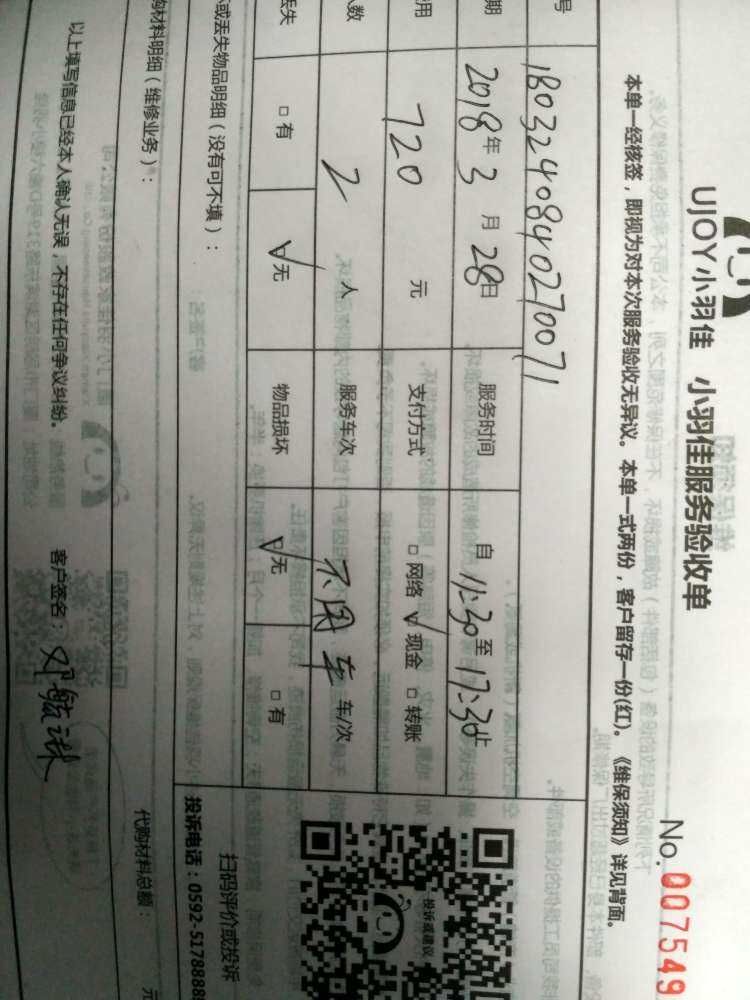 UJOY小羽佳 小羽佳服务验收单
No. 007549
本单一经核签，即视为对本次服务验收无异议。本单一式两份，客户留存一份(红)。《维保须知》详见背面。
号 1803240840270071
期 2018年3月28日 服务时间 自11:30至17:30止
用 720元 支付方式 □网络 ☑现金 □转账
人数 2人 服务车次 不用车 车/次
丢失 □有 ☑无 物品损坏 ☑无 □有
或丢失物品明细（没有可不填）：
扫码评价或投诉
投诉电话：0592-5178888
投诉或建议
购材料明细（维修业务）：
代购材料总额： 元
以上填写信息已经本人确认无误，不存在任何争议纠纷。 客户签名：